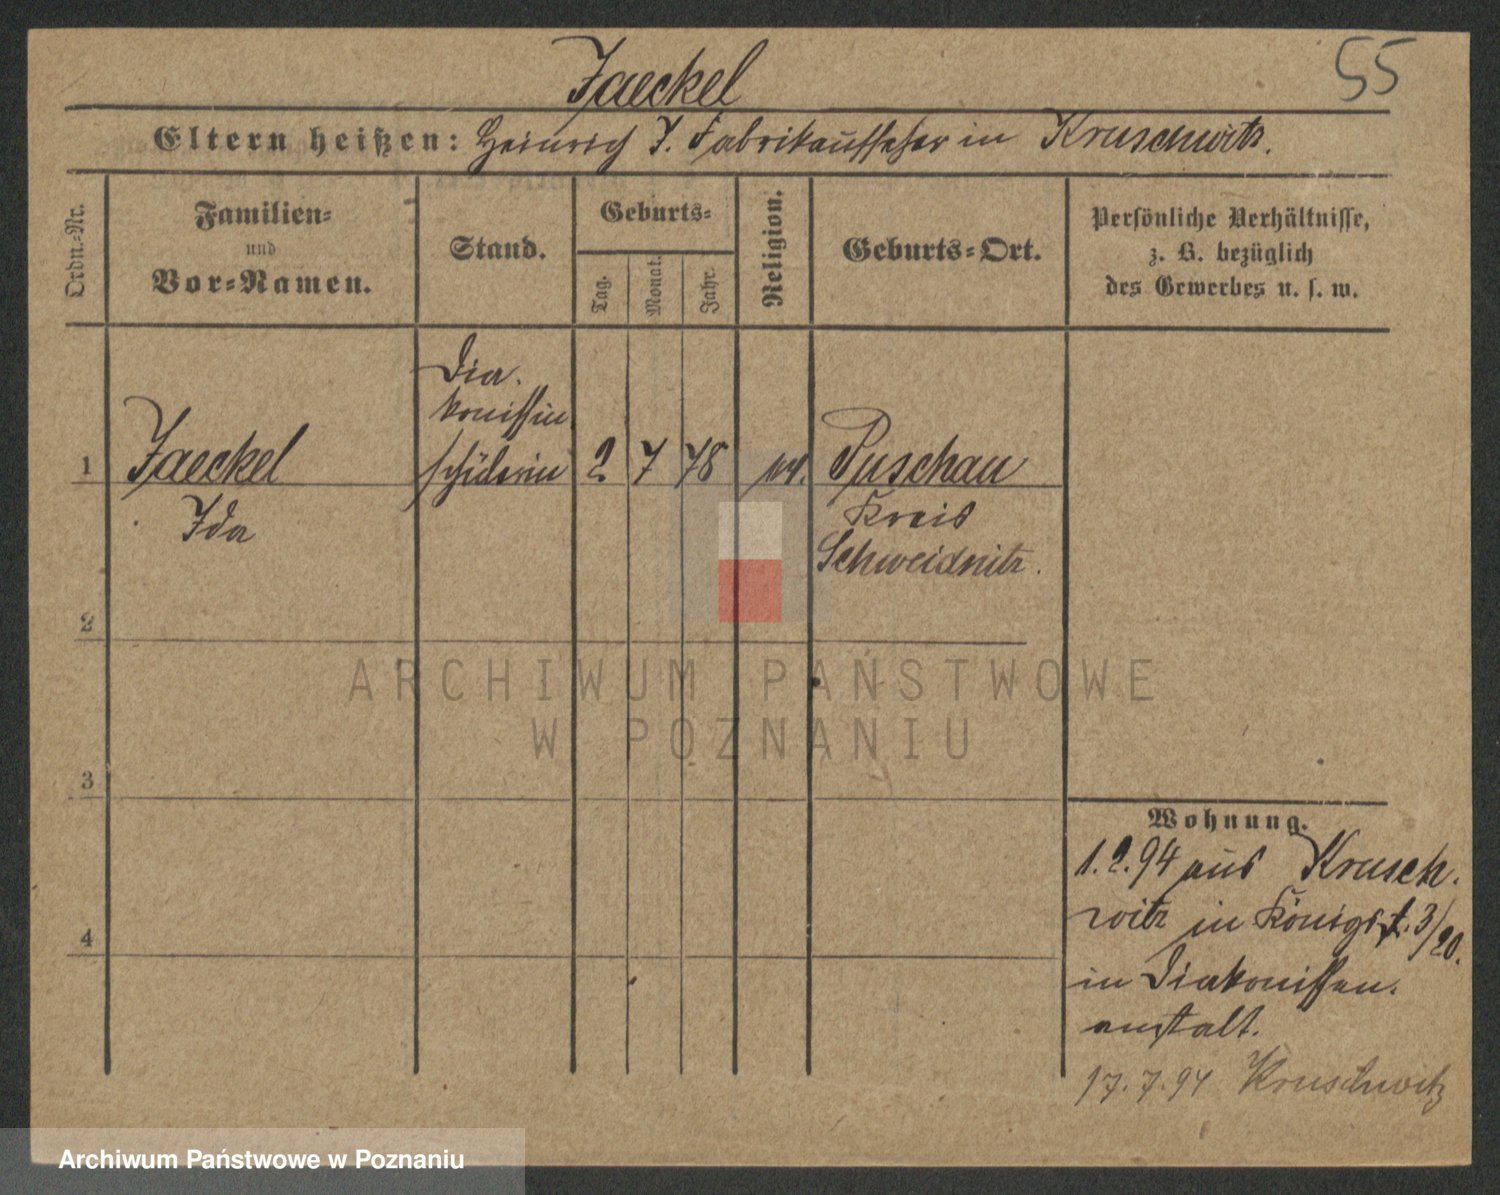 Jaeckel
55
Eltern heißen: Heinrich J. Fabrikaufseher in Kruschwitz.
Ordn.-Nr.
Familien-
und
Vor-Namen.
Stand.
Geburts-
Tag.
Monat.
Jahr.
Religion.
Geburts-Ort.
Persönliche Verhältnisse,
z. B. bezüglich
des Gewerbes u. s. w.
Dia-
konissin
1 Jaeckel schülerin 2 7 78 ev. Puschau
Ida
Kreis
Schweidnitz.
2
3
4
Wohnung.
1.2.94 aus Krusch-
witz in Königst. 3/20.
in Diakonissen-
anstalt.
17.7.94 Kruschwitz
ARCHIWUM PAŃSTWOWE
W POZNANIU
Archiwum Państwowe w Poznaniu